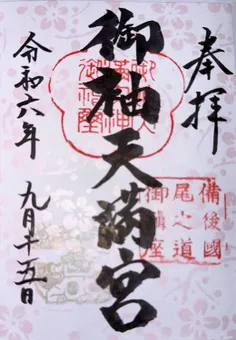 奉拝
御袖天満宮
備後國
尾之道
御鎮座
令和六年 九月十五日